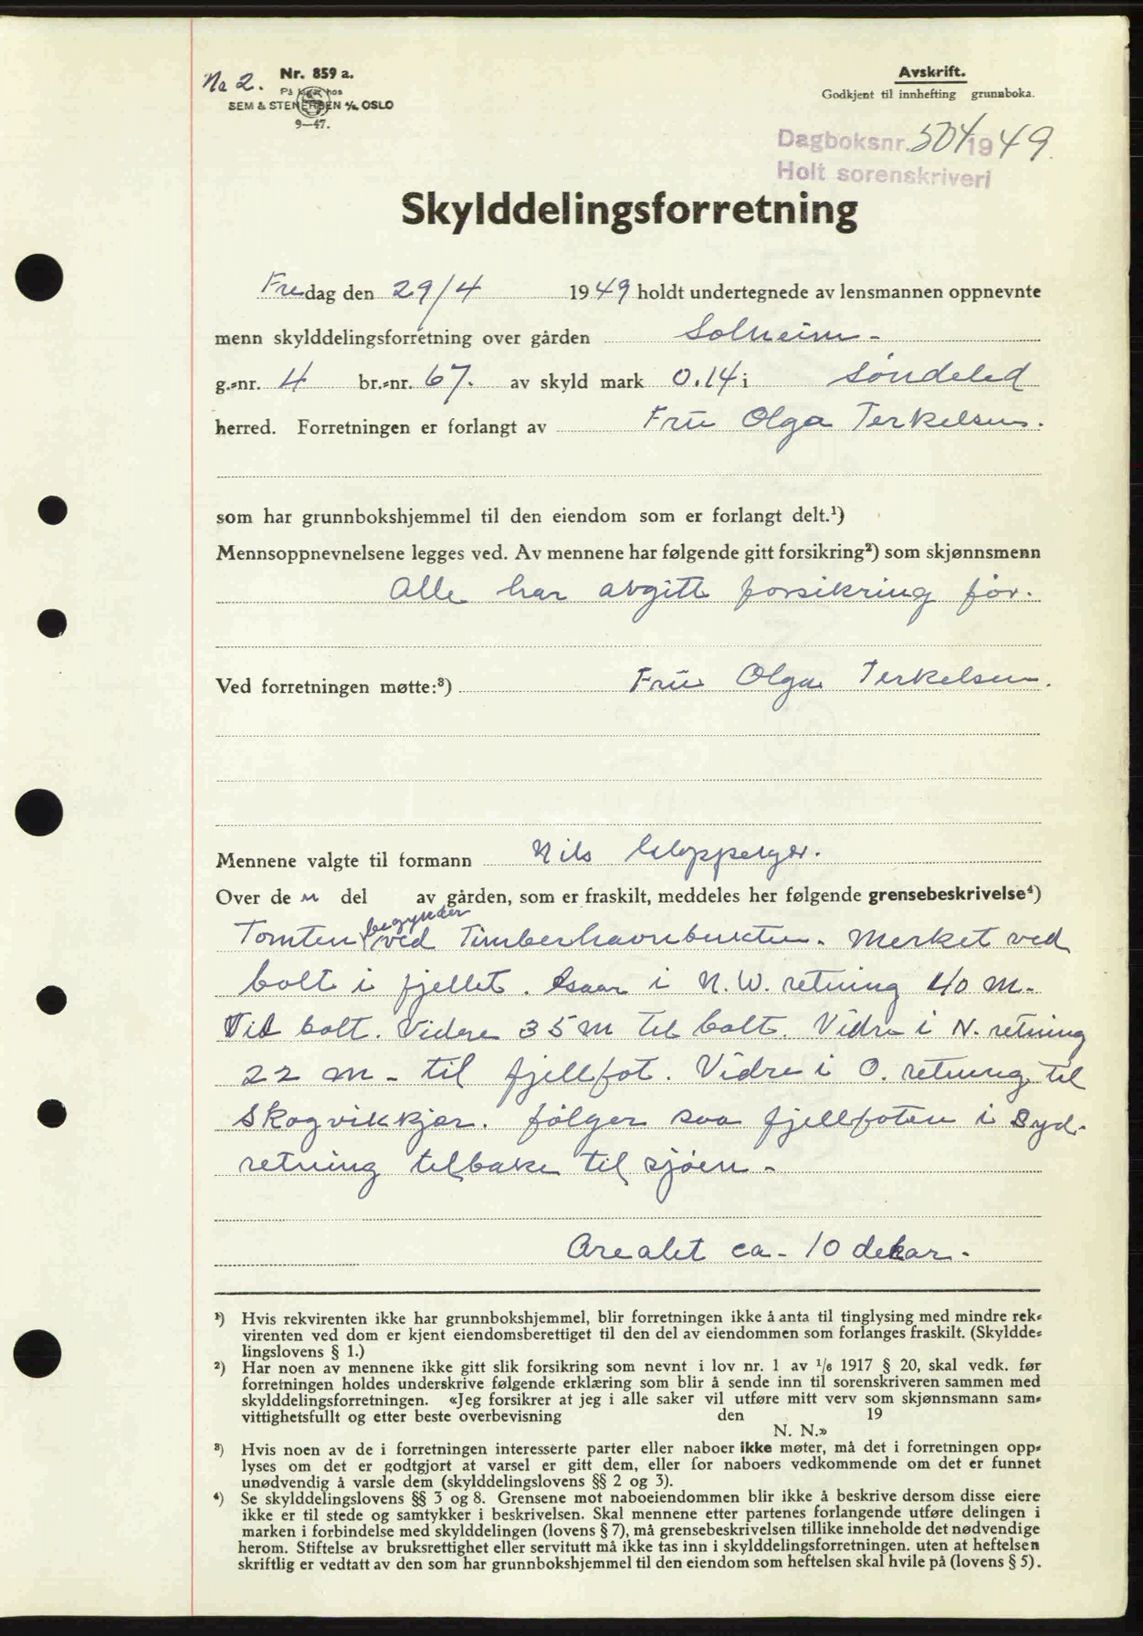 No 2.
Nr. 859 a.
På lager hos
SEM & STENERSEN A/S, OSLO
9—47.
Avskrift.
Godkjent til innhefting grunnboka.
Dagboksnr. 504/1949.
Holt sorenskriveri
Skylddelingsforretning
Fredag den 29/4 1949 holdt undertegnede av lensmannen oppnevnte
menn skylddelingsforretning over gården Solheim -
g.-nr. 4 br.-nr. 67. av skyld mark 0.14 i Søndeled
herred. Forretningen er forlangt av Fru Olga Terkelsen.
som har grunnbokshjemmel til den eiendom som er forlangt delt.¹)
Mennsoppnevnelsene legges ved. Av mennene har følgende gitt forsikring²) som skjønnsmenn
Alle har avgitt forsikring før.
Ved forretningen møtte:³) Fru Olga Terkelsen.
Mennene valgte til formann Nils
Over de n del av gården, som er fraskilt, meddeles her følgende grensebeskrivelse⁴)
begynder
Tomten ved Timberhavnbukten. Merket ved
bolt i fjellet. Saa i N.W. retning 40 m.
Til bolt. Videre 35 m til bolt. Vidre i N. retning
22 m - til fjellfot. Vidre i O. retning til
Skogvikkjær. følger saa fjellfoten i Syd-
retning tilbake til sjøen -
Arealet ca - 10 dekar -
¹) Hvis rekvirenten ikke har grunnbokshjemmel, blir forretningen ikke å anta til tinglysing med mindre rek-
virenten ved dom er kjent eiendomsberettiget til den del av eiendommen som forlanges fraskilt. (Skyldde-
lingslovens § 1.)
²) Har noen av mennene ikke gitt slik forsikring som nevnt i lov nr. 1 av 1/6 1917 § 20, skal vedk. før
forretningen holdes underskrive følgende erklæring som blir å sende inn til sorenskriveren sammen med
skylddelingsforretningen. «Jeg forsikrer at jeg i alle saker vil utføre mitt verv som skjønnsmann sam-
vittighetsfullt og etter beste overbevisning den 19
N. N.»
³) Hvis noen av de i forretningen interesserte parter eller naboer ikke møter, må det i forretningen opp-
lyses om det er godtgjort at varsel er gitt dem, eller for naboers vedkommende om det er funnet
unødvendig å varsle dem (skylddelingslovens §§ 2 og 3).
⁴) Se skylddelingslovens §§ 3 og 8. Grensene mot naboeiendommen blir ikke å beskrive dersom disse eiere
ikke er til stede og samtykker i beskrivelsen. Skal mennene etter partenes forlangende utføre delingen i
marken i forbindelse med skylddelingen (lovens § 7), må grensebeskrivelsen tillike inneholde det nødvendige
herom. Stiftelse av bruksrettighet eller servitutt må ikke tas inn i skylddelingsforretningen. uten at heftelsen
skriftlig er vedtatt av den som har grunnbokshjemmel til den eiendom som heftelsen skal hvile på (lovens § 5).